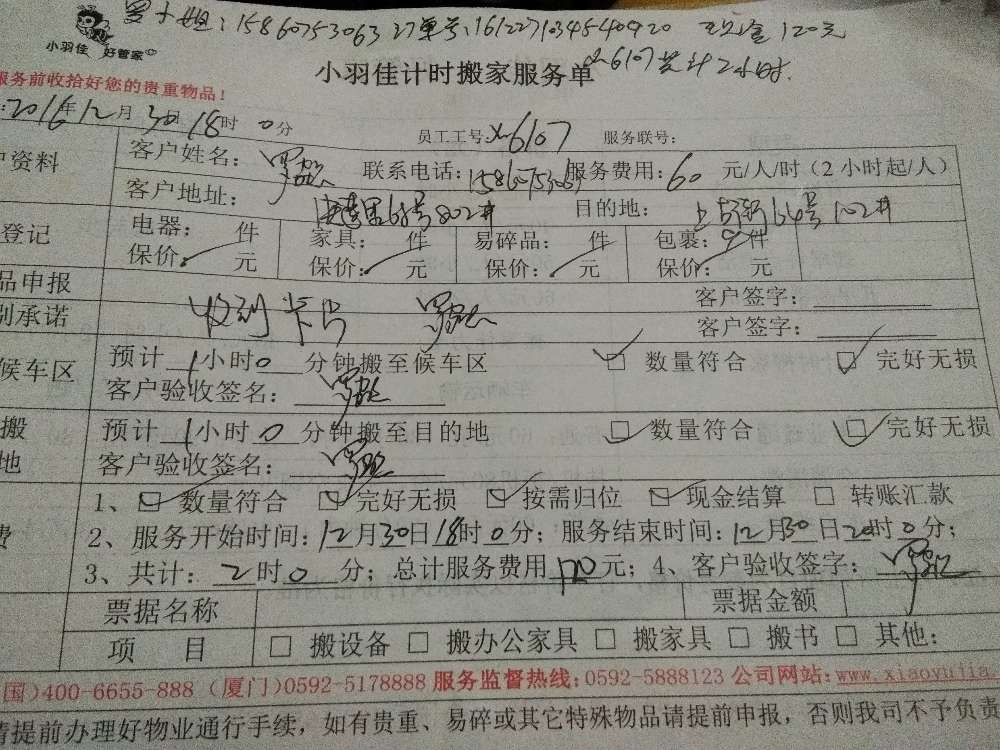 罗小姐：15860753063 27单号：161227103454540920 现金120元
小羽佳 好管家
小羽佳计时搬家服务单 xm6107共计2小时.
服务前收拾好您的贵重物品！
：2016年12月30日18时0分 员工工号：xm6107 服务联号：
户资料 客户姓名： 联系电话：15860753063 服务费用：60 元/人/时（2小时起/人）
客户地址： 63号802# 目的地： 64号102#
登记 电器： 件 家具： 件 易碎品： 件 包裹：9件
保价： 元 保价： 元 保价： 元 保价： 元
品申报 客户签字：
别承诺 收到卡片 客户签字：
候车区 预计 1小时0 分钟搬至候车区 数量符合 完好无损
客户验收签名：
搬 预计 1小时0 分钟搬至目的地 数量符合 完好无损
地 客户验收签名：
1、 数量符合 完好无损 按需归位 现金结算 转账汇款
费 2、服务开始时间：12月30日18时0分；服务结束时间：12月30日20时0分；
3、共计：2时0 分；总计服务费用120元；4、客户验收签字：
票据名称 票据金额
项 目 搬设备 搬办公家具 搬家具 搬书 其他：
国)400-6655-888（厦门)0592-5178888 服务监督热线：0592-5888123 公司网站：www.xiaoyujia.
请提前办理好物业通行手续，如有贵重、易碎或其它特殊物品请提前申报，否则我司不予负责